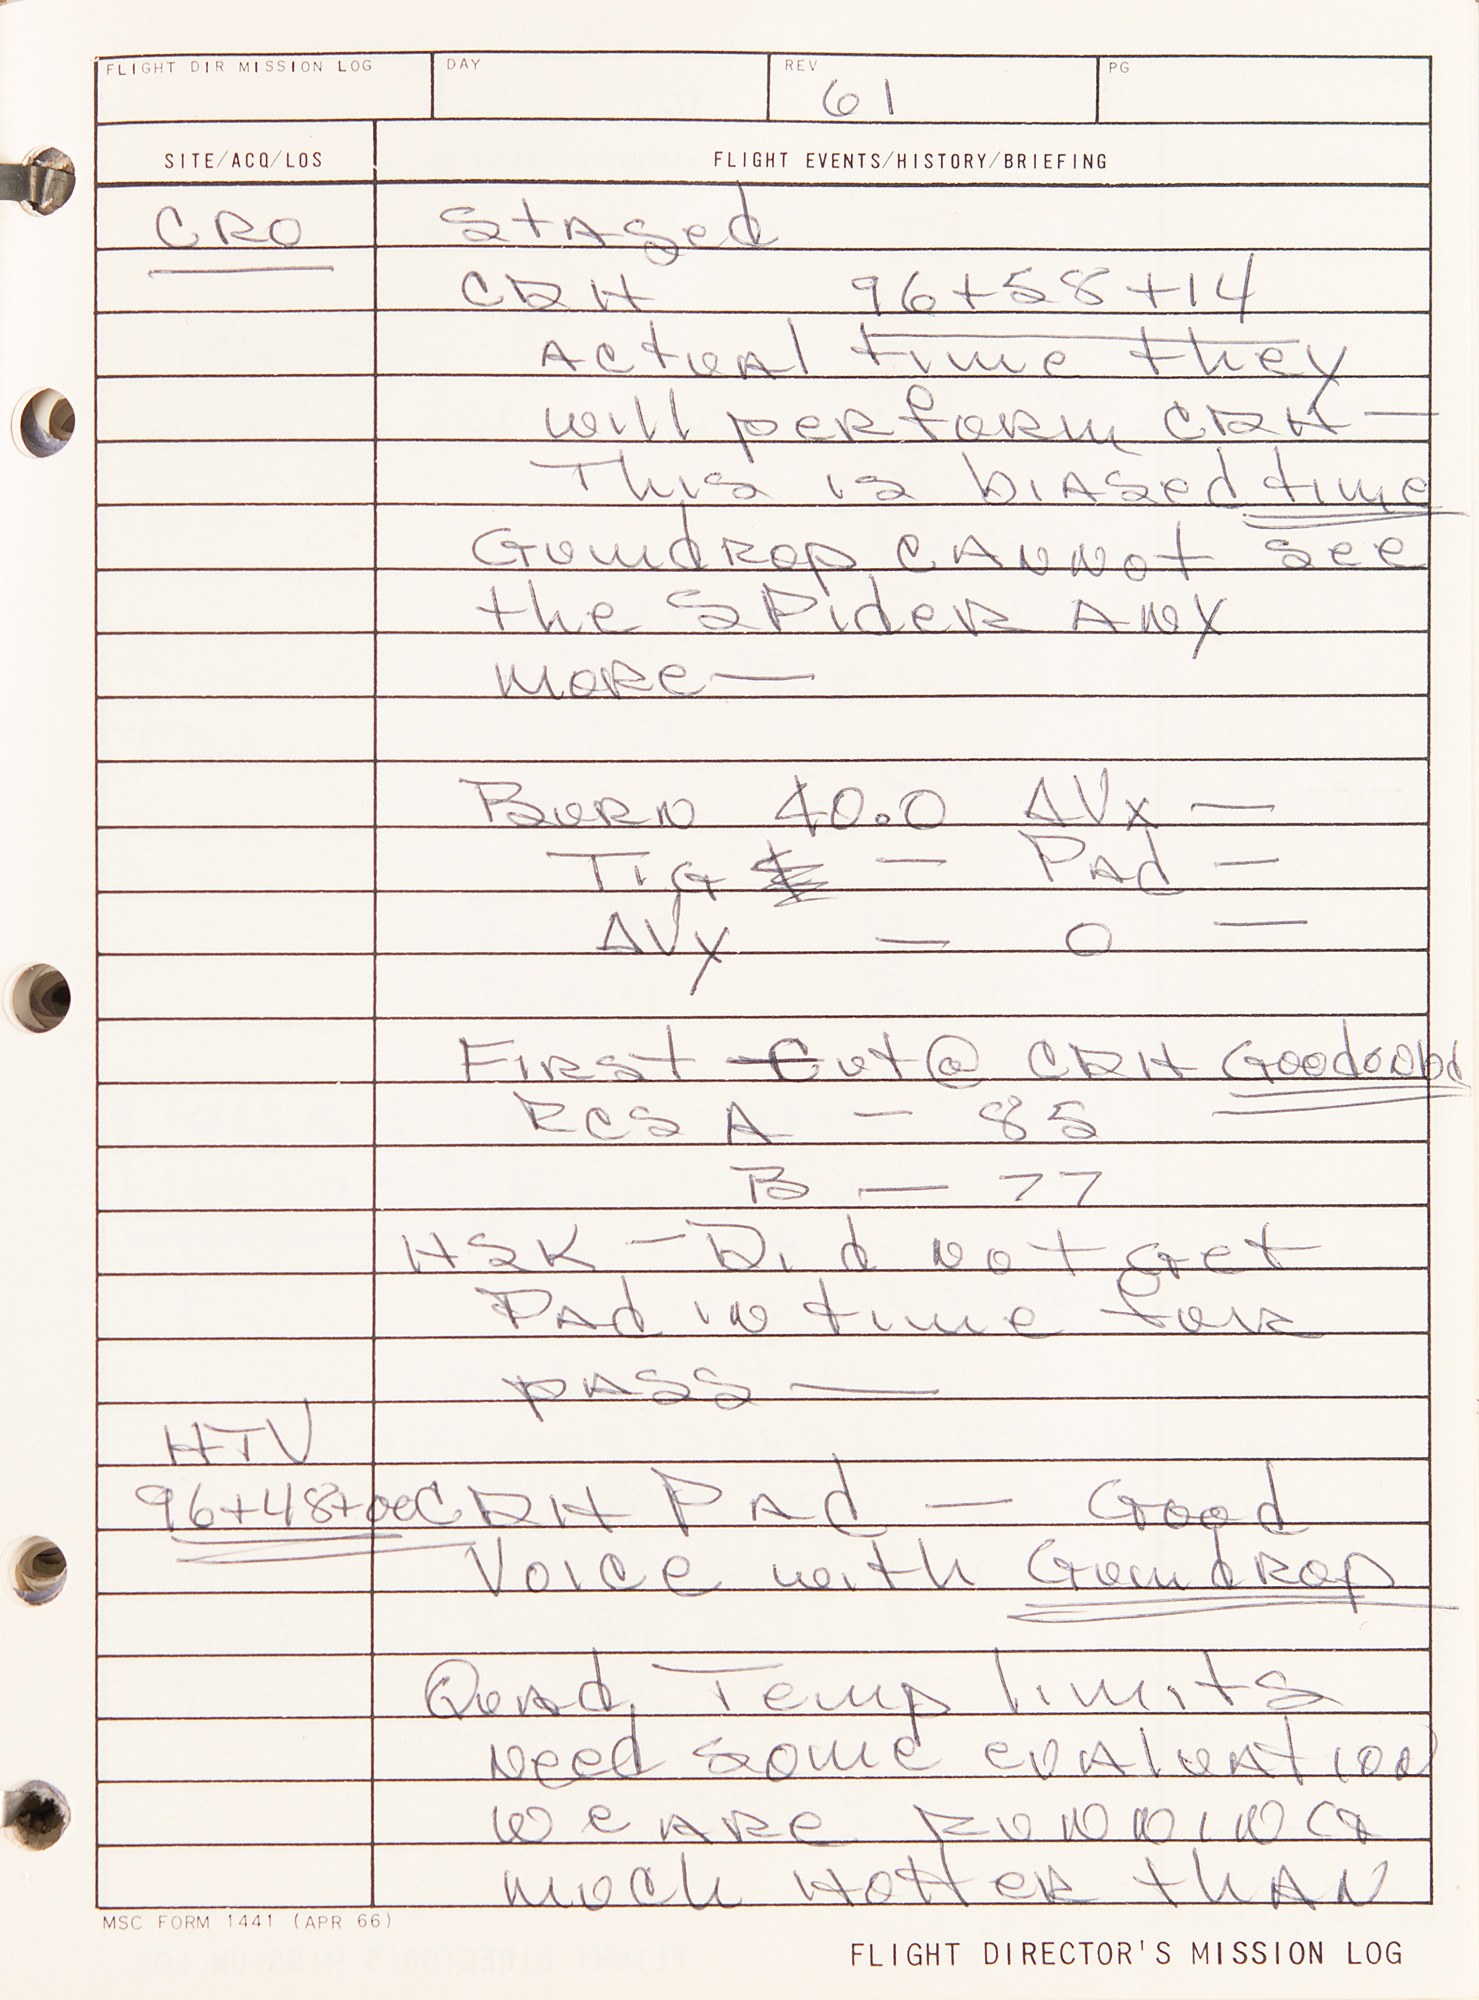 FLIGHT DIR MISSION LOG DAY REV PG
61
SITE/ACQ/LOS FLIGHT EVENTS/HISTORY/BRIEFING
CRO Staged
CDH 96+58+14
Actual time they
will perform CDH —
This is biased time
Gumdrop cannot see
the Spider any
more —
Burn 40.0 ΔVx —
TIG — Pad —
ΔVy — 0 —
First Cut @ CDH Good
RCS A — 85
B — 77
HSK — Did not get
Pad in time for
pass —
HTV
96+48+00 CDH Pad — Good
Voice with Gumdrop
Quad Temp limits
need some evaluation
we are running
much hotter than
MSC FORM 1441 (APR 66)
FLIGHT DIRECTOR'S MISSION LOG